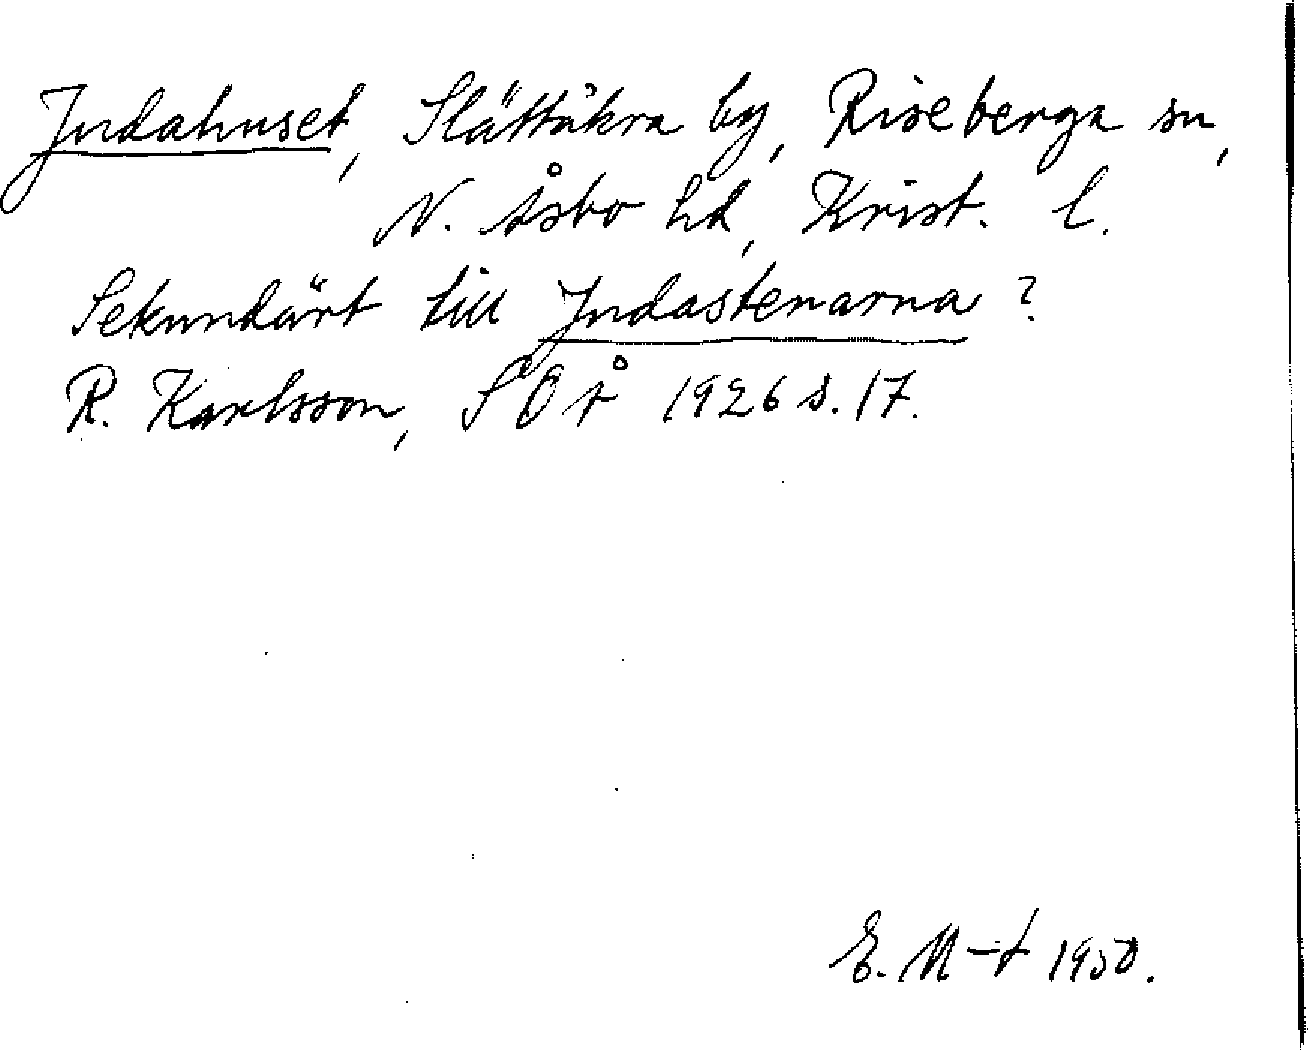 Judahuset, Slättåkra by, Riseberga sn,
N. Åsbo hd, Krist. l.
Sekundärt till Judastenarna?
R. Karlsson, SOÅ 1926 s. 17.
E. M-t 1950.